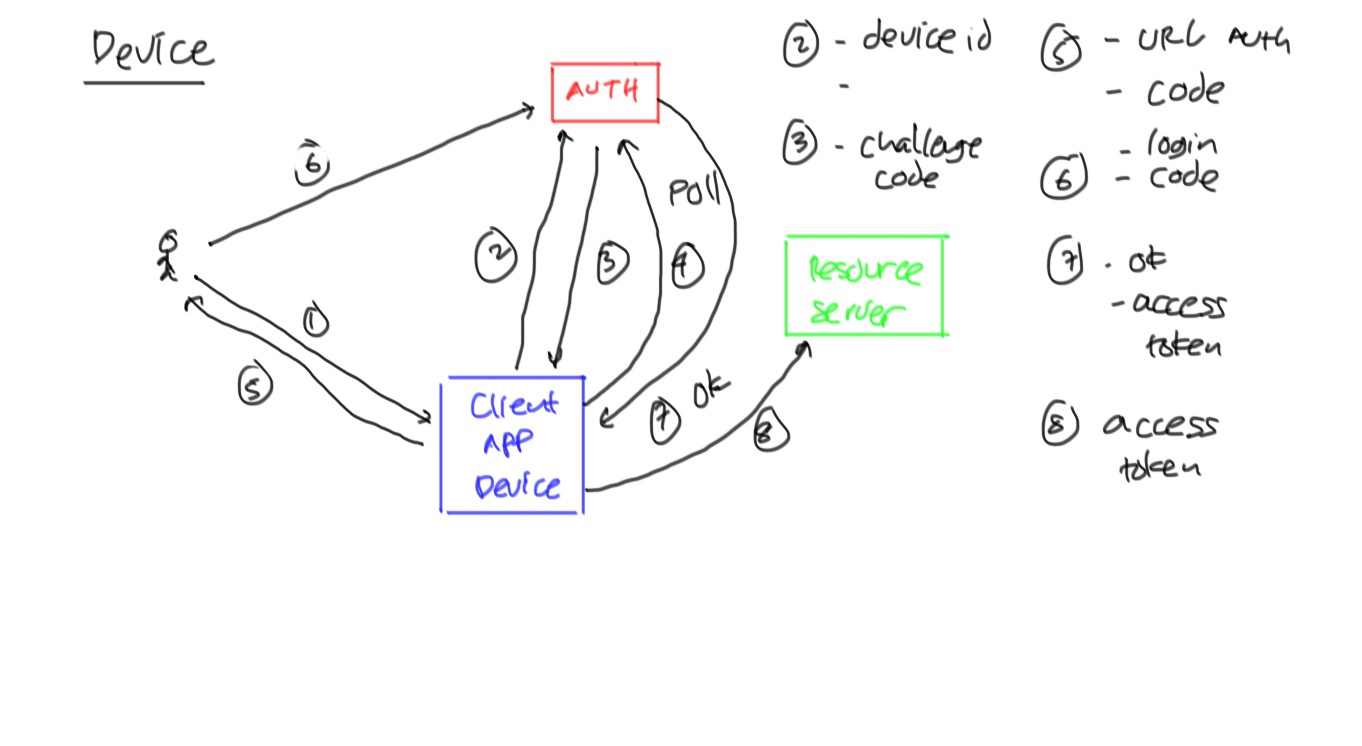 Device
AUTH
6
Poll
2
3
4
1
5
Client
APP
Device
7 OK
8
Resource
server
2 - device id
-
3 - challage
code
5 - URL AUTH
- code
- login
6 - code
7 . ok
- access
token
8 access
token